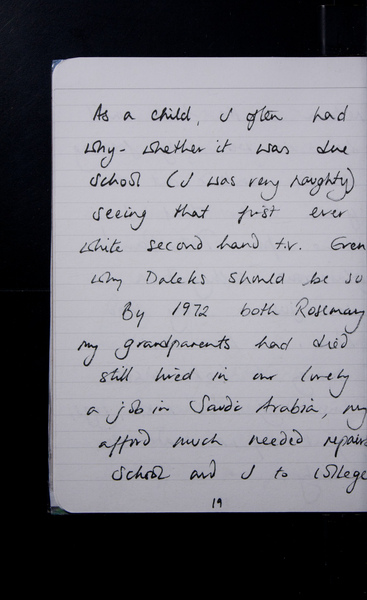 As a child, I often had
why - whether it was due
school (I was very naughty)
seeing that first ever
white second hand t.v. Even
why Daleks should be so
By 1972 both Rosemary
my grandparents had died
still lived in our lovely
a job in Saudi Arabia, my
afford much needed repairs
school and I to college
19